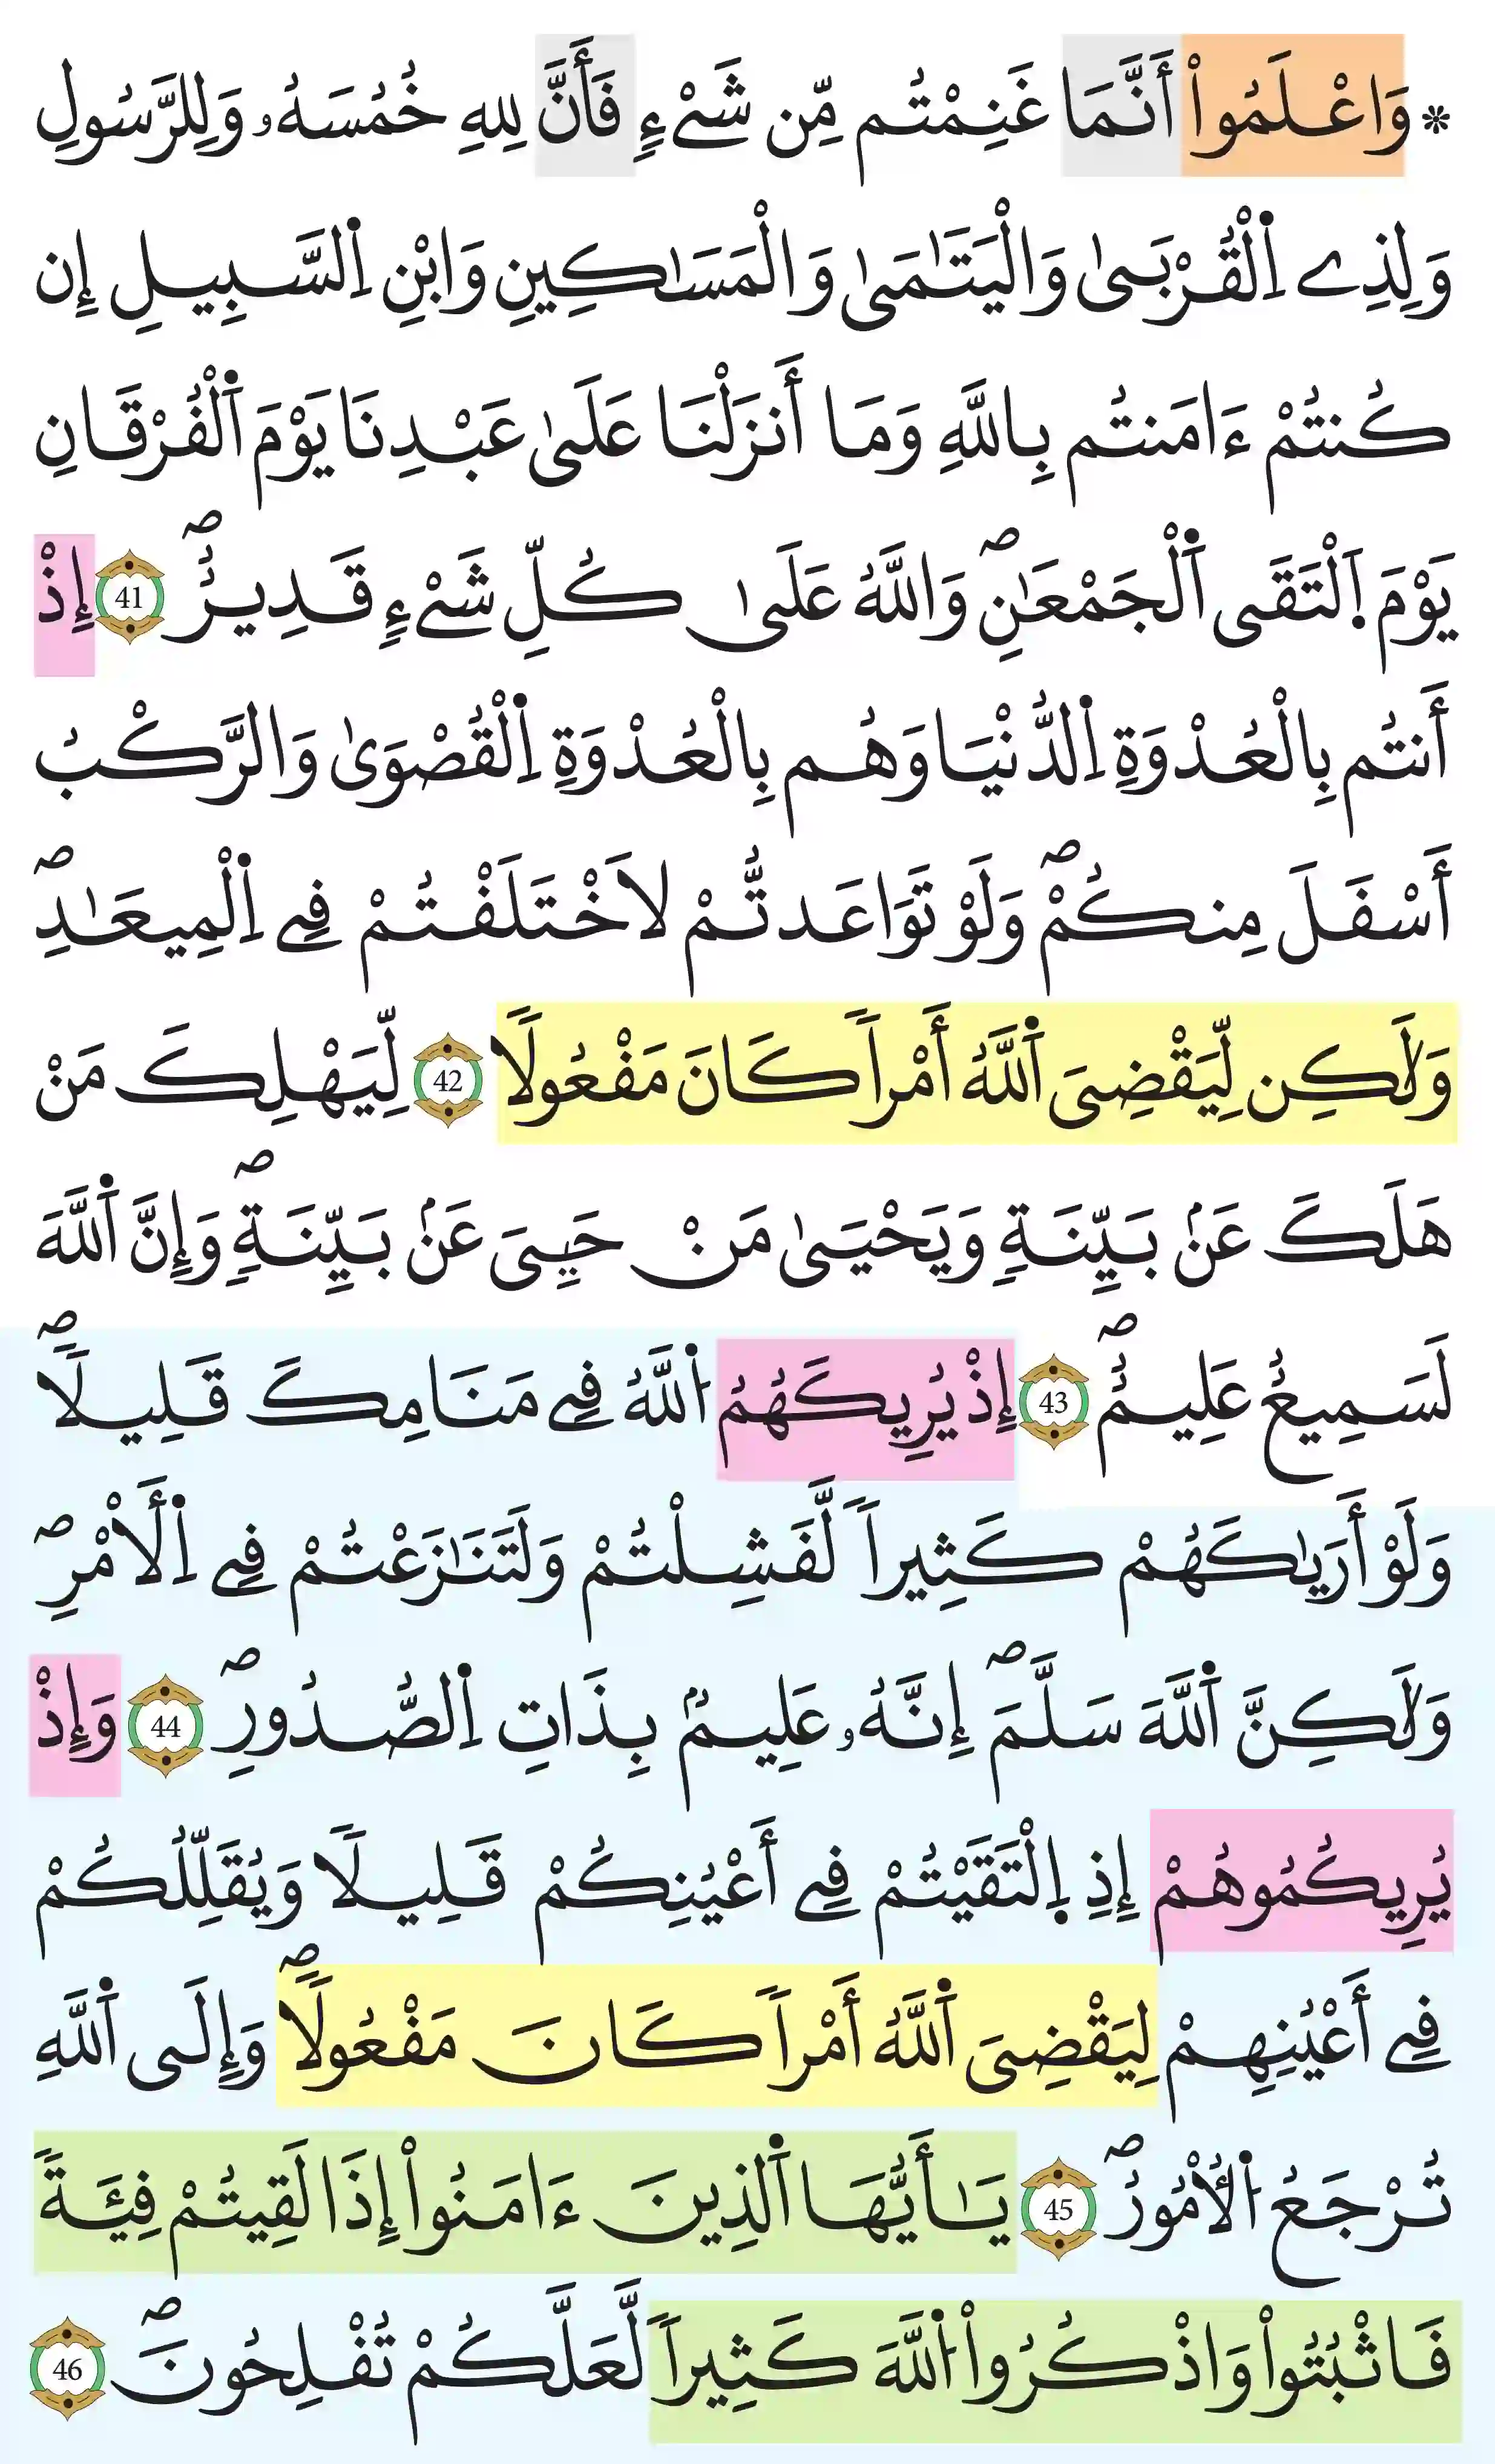 * وَاعْلَمُواْ أَنَّمَا غَنِمْتُم مِّن شَےْءٍ فَأَنَّ لِلهِ خُمُسَهُۥ وَلِلرَّسُولِ
وَلِذِے اِ۬لْقُرْبَىٰ وَالْيَتَٰمَىٰ وَالْمَسَٰكِينِ وَابْنِ اِ۬لسَّبِيلِ إِن
كُنتُمْ ءَامَنتُم بِاللَّهِ وَمَا أَنزَلْنَا عَلَىٰ عَبْدِنَا يَوْمَ اَ۬لْفُرْقَانِ
يَوْمَ اَ۪لْتَقَى اَ۬لْجَمْعَٰنِۖ وَاللَّهُ عَلَىٰ كُلِّ شَےْءٍ قَدِيرٌۖ 41 إِذْ
أَنتُم بِالْعُدْوَةِ اِ۬لدُّنْيَا وَهُم بِالْعُدْوَةِ اِ۬لْقُصْوَىٰ وَالرَّكْبُ
أَسْفَلَ مِنكُمْۖ وَلَوْ تَوَاعَدتُّمْ لَاخْتَلَفْتُمْ فِے اِ۬لْمِيعَٰدِۖ
وَلَٰكِن لِّيَقْضِىَ اَ۬للَّهُ أَمْراً كَانَ مَفْعُولًا 42 لِّيَهْلِكَ مَنْ
هَلَكَ عَنۢ بَيِّنَةٍ وَيَحْيَىٰ مَنْ حَيِىَ عَنۢ بَيِّنَةٍۖ وَإِنَّ اَ۬للَّهَ
لَسَمِيعٌ عَلِيمٌۖ 43 إِذْ يُرِيكَهُمُ اُ۬للَّهُ فِے مَنَامِكَ قَلِيلًاۖ
وَلَوْ أَرَيٰكَهُمْ كَثِيراً لَّفَشِلْتُمْ وَلَتَنَٰزَعْتُمْ فِے اِ۬لَأمْرِۖ
وَلَٰكِنَّ اَ۬للَّهَ سَلَّمَۖ إِنَّهُۥ عَلِيمٌۢ بِذَاتِ اِ۬لصُّدُورِۖ 44 وَإِذْ
يُرِيكُمُوهُمْ إِذِ اِ۪لْتَقَيْتُمْ فِے أَعْيُنِكُمْ قَلِيلًا وَيُقَلِّلُكُمْ
فِے أَعْيُنِهِمْ لِيَقْضِىَ اَ۬للَّهُ أَمْراً كَانَ مَفْعُولًاۖ وَإِلَى اَ۬للَّهِ
تُرْجَعُ اُ۬لُأمُورُۖ 45 يَٰأَيُّهَا اَ۬لذِينَ ءَامَنُواْ إِذَا لَقِيتُمْ فِئَةً
فَاثْبُتُواْ وَاذْكُرُواْ اُ۬للَّهَ كَثِيراً لَّعَلَّكُمْ تُفْلِحُونَۖ 46